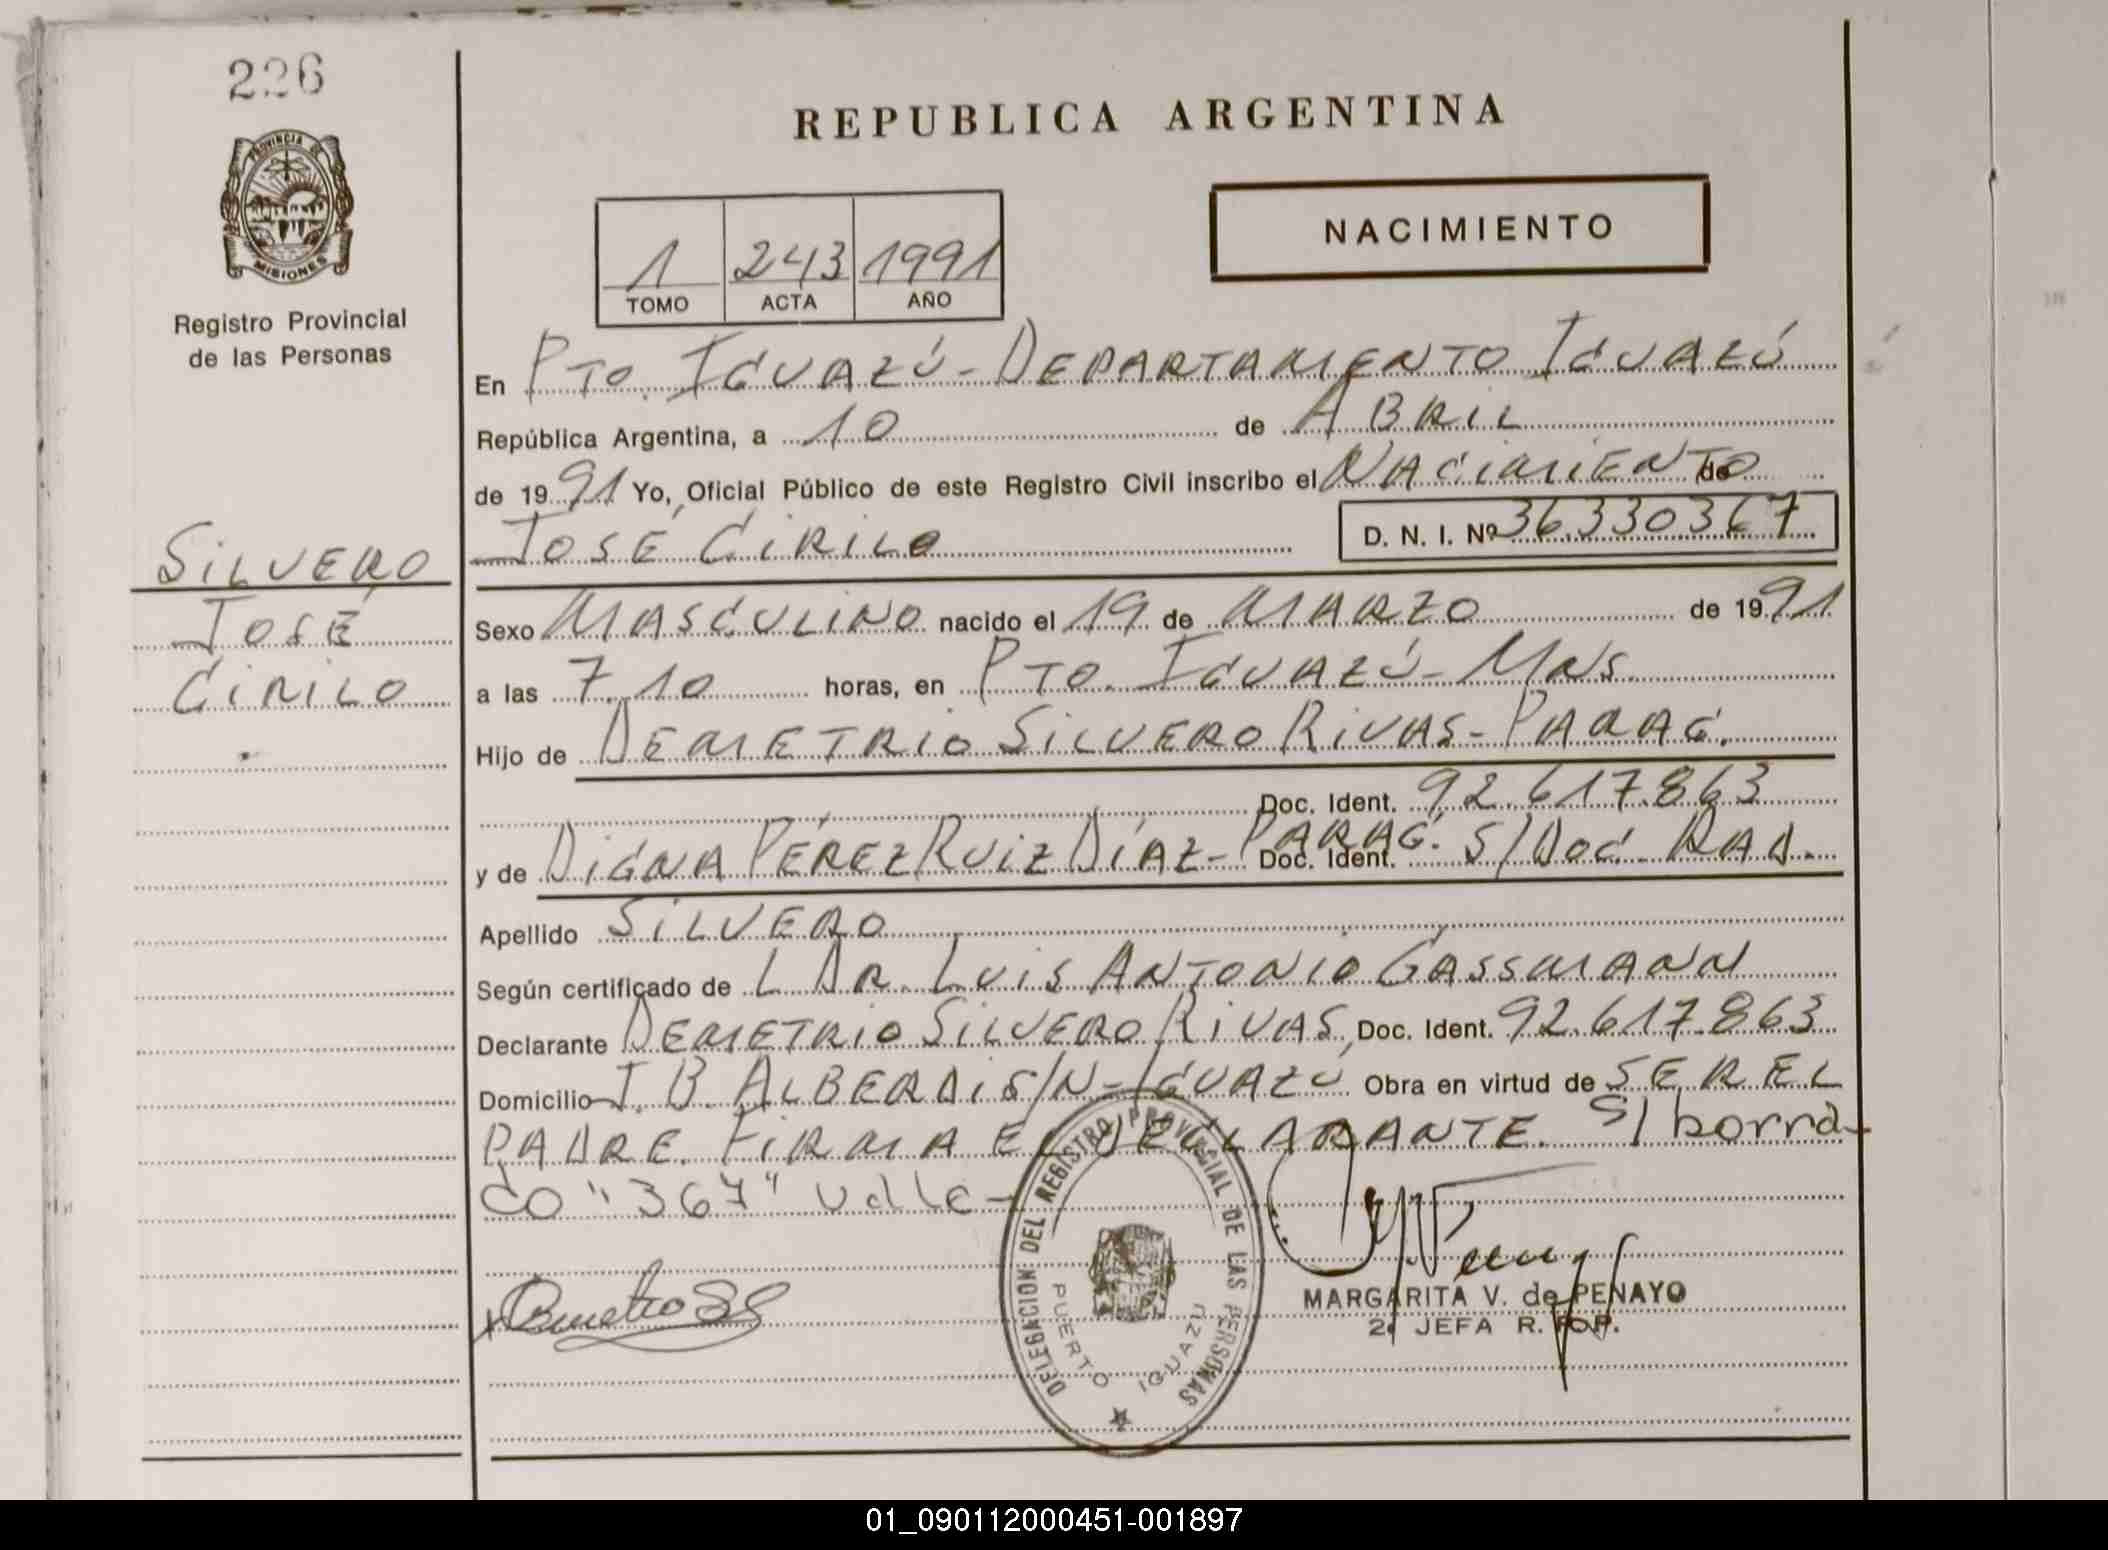 226
PROVINCIA DE
MISIONES
Registro Provincial
de las Personas
REPUBLICA ARGENTINA
NACIMIENTO
1 243 1991
TOMO ACTA AÑO
En PTO. IGUAZÚ - DEPARTAMENTO IGUAZÚ
República Argentina, a 10 de ABRIL
de 1991 Yo, Oficial Público de este Registro Civil inscribo el NACIMIENTO de
JOSÉ CIRILO D. N. I. Nº 36330367
SILVERO
JOSÉ
CIRILO
Sexo MASCULINO nacido el 19 de MARZO de 1991
a las 7.10 horas, en PTO. IGUAZÚ - MNS.
Hijo de DEMETRIO SILVERO RIVAS - PARAG.
Doc. Ident. 92.617.863
y de DIGNA PÉREZ RUIZ DÍAZ - PARAG. Doc. Ident. S/DOC. RAD.
Apellido SILVERO
Según certificado de L DR. LUIS ANTONIO GASSMANN
Declarante DEMETRIO SILVERO RIVAS, Doc. Ident. 92.617.863
Domicilio J. B. ALBERDI S/N - IGUAZÚ Obra en virtud de SER EL
PADRE. FIRMA EL DECLARANTE. S/ borra-
do "367" valle -
DELEGACION DEL REGISTRO PROVINCIAL DE LAS PERSONAS
PUERTO IGUAZU
MARGARITA V. de PENAYO
2º JEFA R. P. P.
01_090112000451-001897